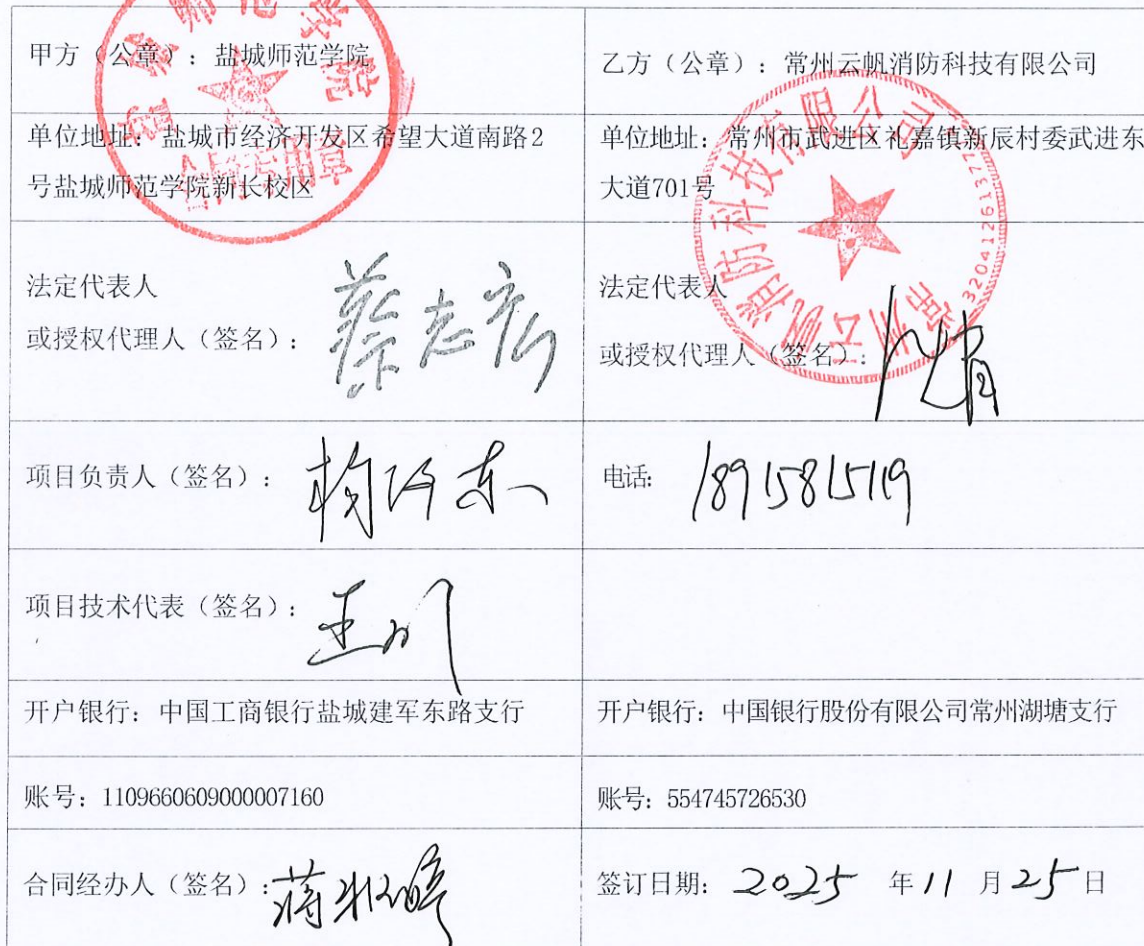 甲方（公章）：盐城师范学院
乙方（公章）：常州云帆消防科技有限公司
单位地址：盐城市经济开发区希望大道南路2
号盐城师范学院新长校区
单位地址：常州市武进区礼嘉镇新辰村委武进东
大道701号
法定代表人
或授权代理人（签名）：蔡志宏
法定代表人
或授权代理人（签名）：
项目负责人（签名）：
电话：18915815119
项目技术代表（签名）：
开户银行：中国工商银行盐城建军东路支行
开户银行：中国银行股份有限公司常州湖塘支行
账号：1109660609000007160
账号：554745726530
合同经办人（签名）：
签订日期：2025 年 11 月 25 日
盐城师范学院
合同专用章
常州云帆消防科技有限公司